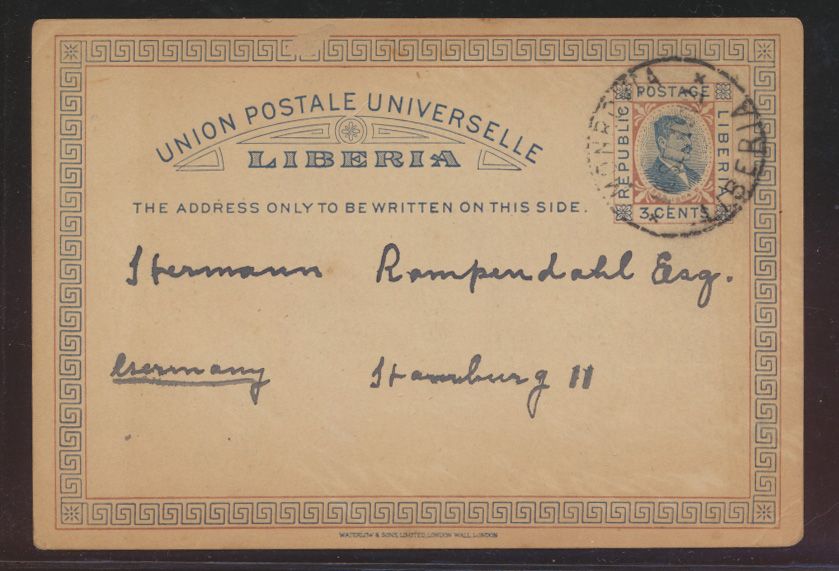 UNION POSTALE UNIVERSELLE
LIBERIA
THE ADDRESS ONLY TO BE WRITTEN ON THIS SIDE.
POSTAGE
REPUBLIC
LIBERIA
3 CENTS
MONROVIA
LIBERIA
Hermann Rompendahl Esq.
Germany Hamburg 11
WATERLOW & SONS, LIMITED, LONDON WALL, LONDON